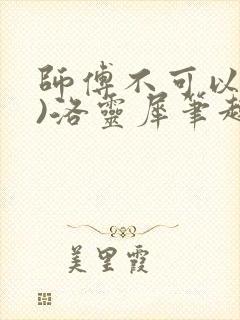 師傅不可以
)洛靈犀筆趣
美里霞